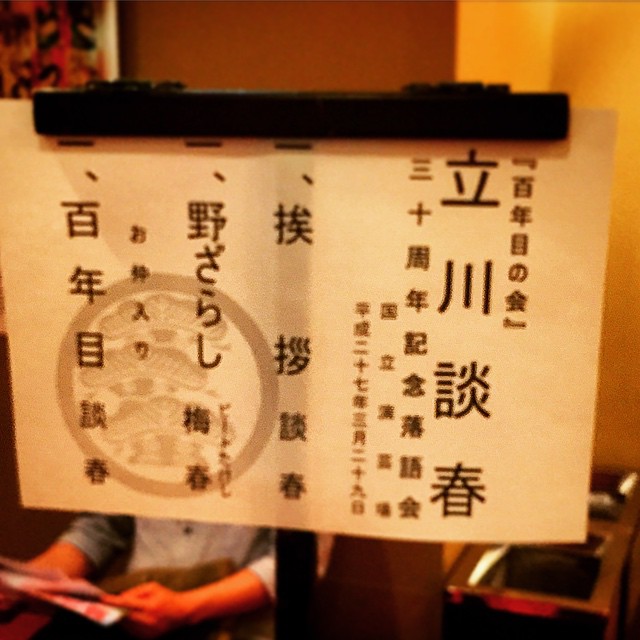 『百年目の会』
立川談春
三十周年記念落語会
国立演芸場
平成二十七年三月二十九日
一、挨拶 談春
一、野ざらし 梅春
ビートたけし
お仲入り
一、百年目 談春